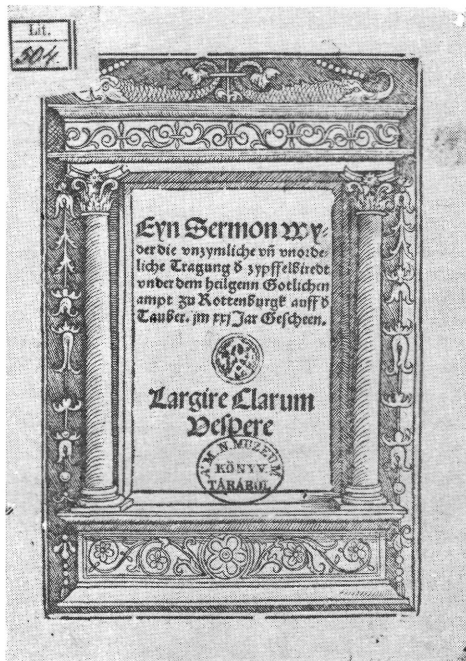 Lit.
504.
Eyn Sermon wy-
der die vnzymliche vñ vnorde-
liche Tragung d̕ zypffelbiredt
vnder dem heilgenn Gotlichen
ampt zu Rottenburgk auff d̕
Tauber. jm xxj Jar Gescheen.
Largire Clarum
Vespere
A. M. N. MUZEUM
KÖNYV
TÁRÁBÓL